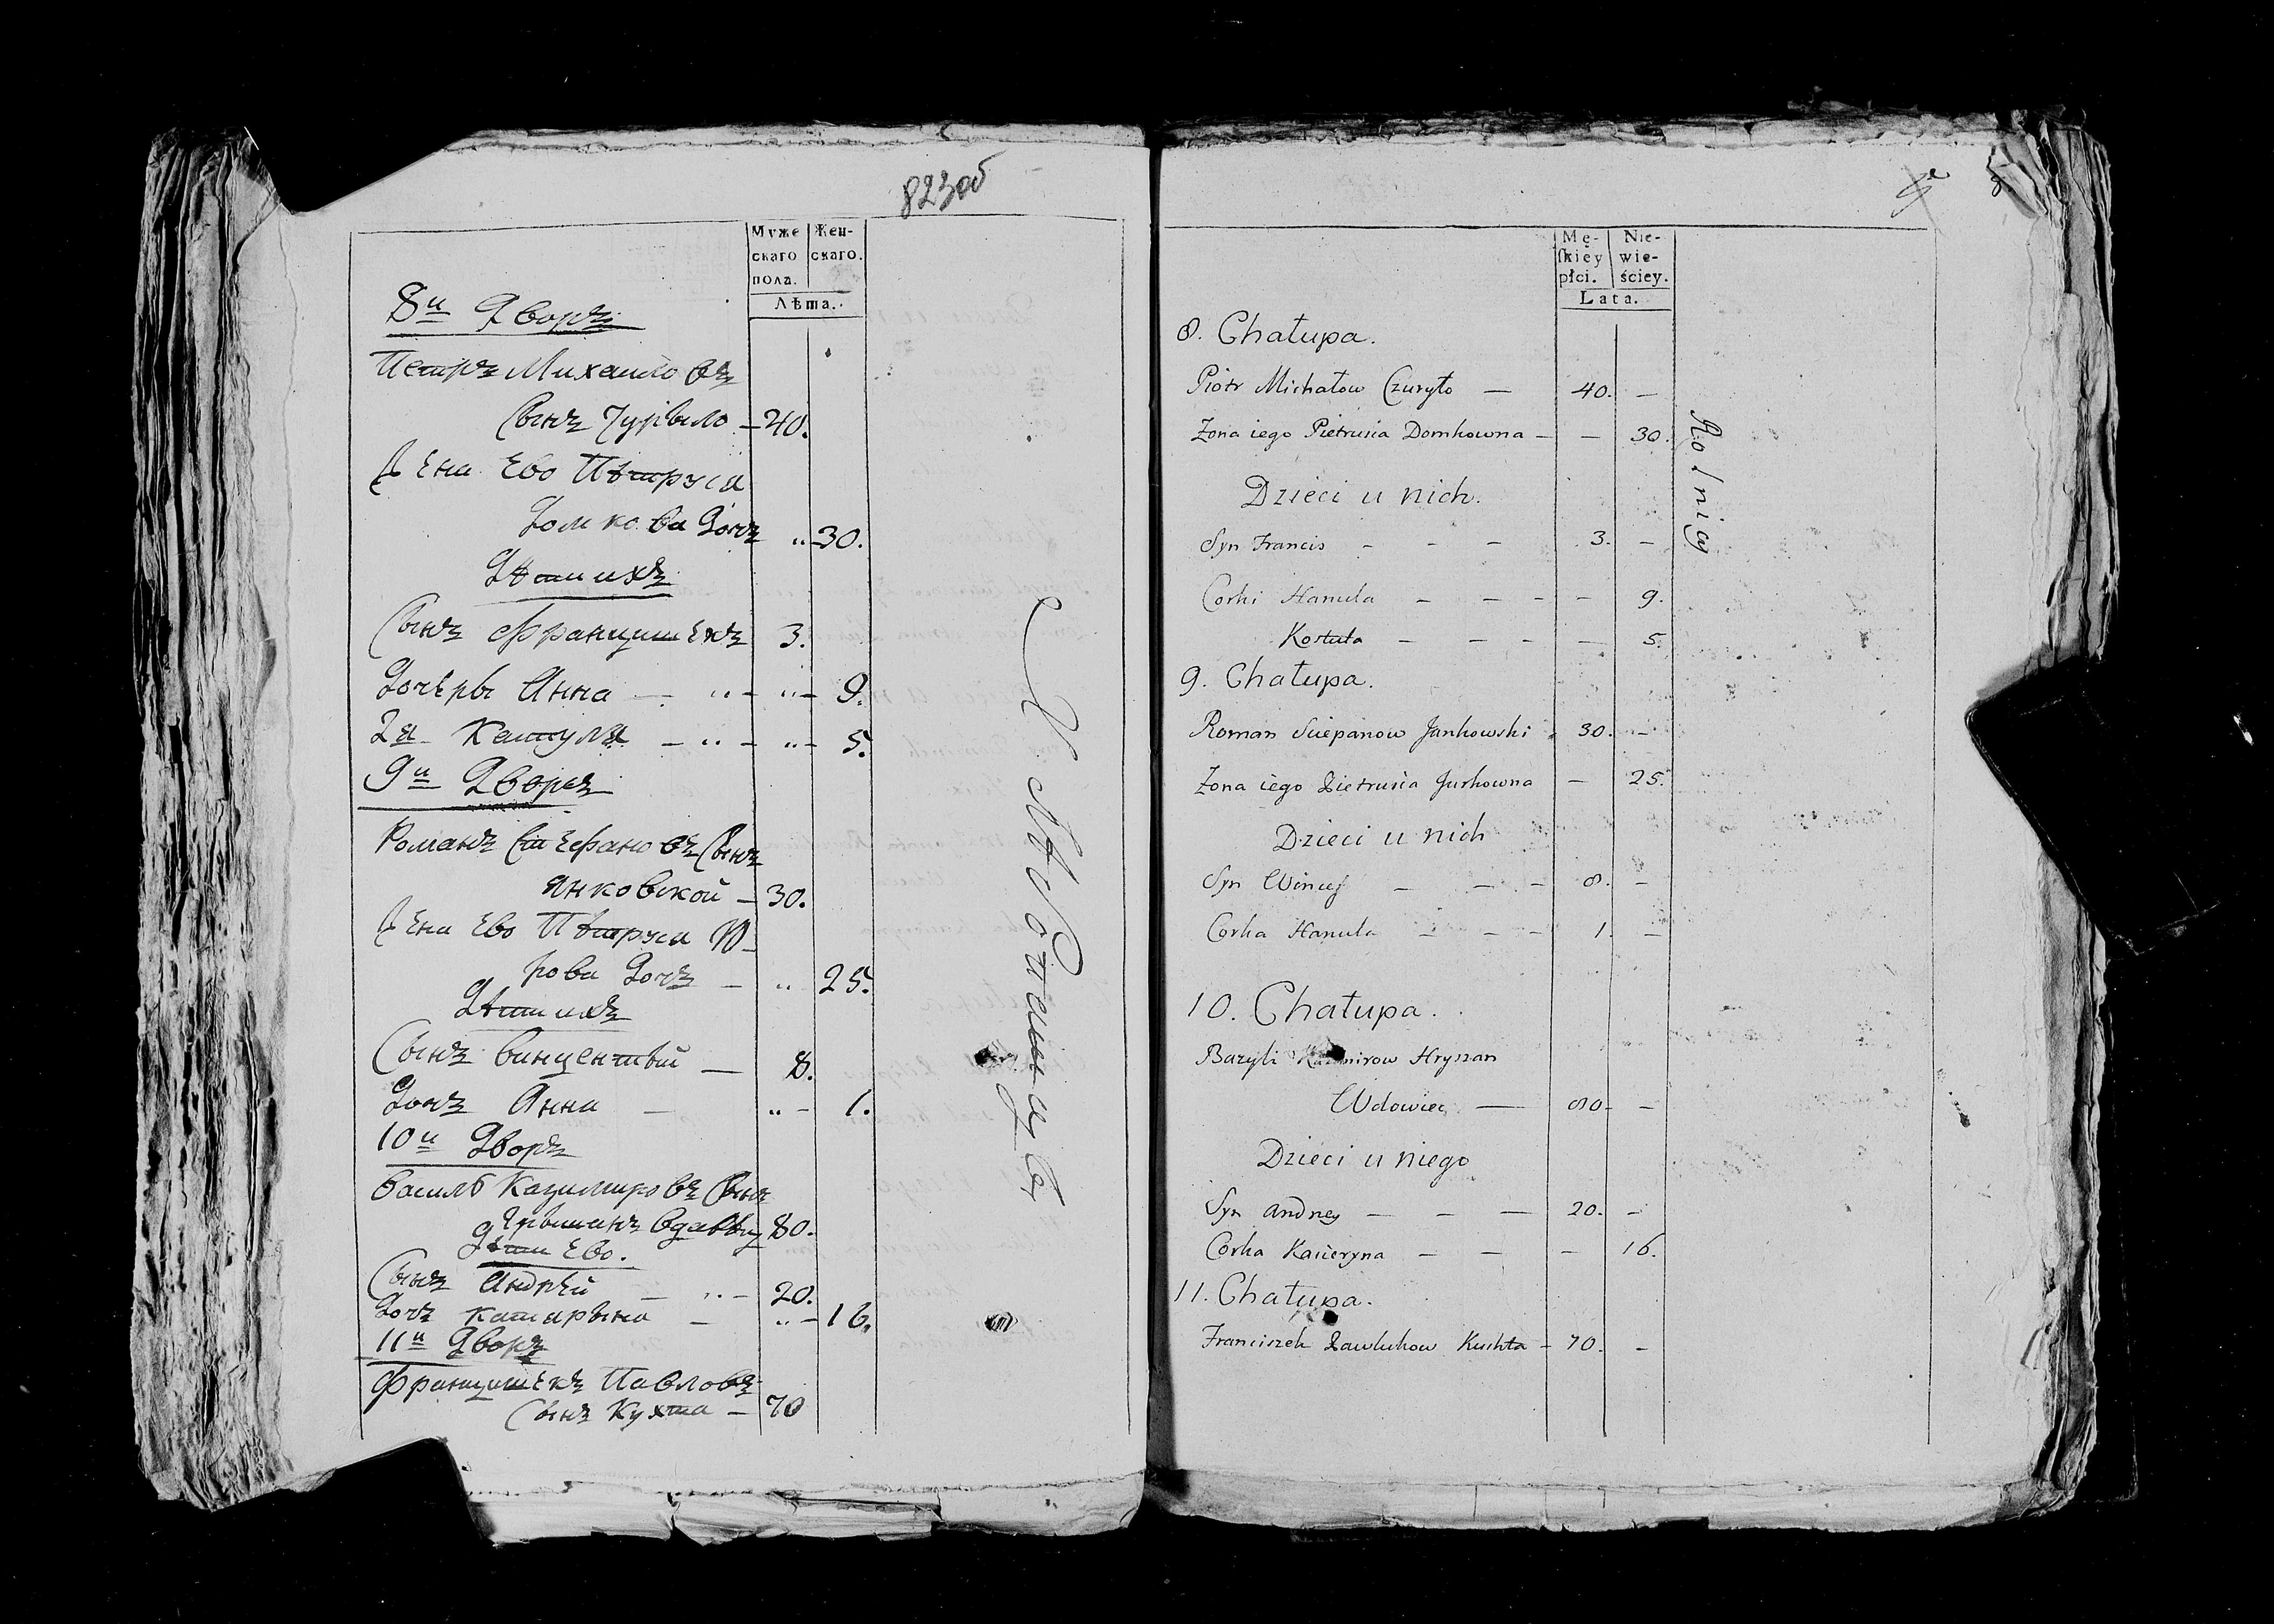 823об
Муже
скаго
пола.
Жен-
скаго.
Лѣта.
8й Дворъ
Петръ Михайловъ
Сынъ Чурыло — 40.
Жена Ево Пѣтруся
Домкова Дочь „ 30.
Дѣти ихъ
Сынъ Францишекъ 3.
Дочери Анна — „ — „ — 9.
2я Кастуля — „ — „ — 5.
9й Дворъ
Романъ Стефановъ Сынъ
Янковской — 30.
Жена Ево Пѣтруся Ю-
рова Дочь — „ 25.
Дѣти ихъ
Сынъ Винцентый — 8.
Дочь Анна — „ — 1.
10й Дворъ
Василь Казимировъ Сынъ
Грышанъ Вдавец 80.
Дѣти Ево.
Сынъ Андрей — „ — 20.
Дочь Катарына — „ — 16.
11й Дворъ
Францишекъ Павловъ
Сынъ Кухта — 70
Хлѣбопашцы
Mę-
ſkiey
płci.
Nie-
wie-
ściey.
Lata.
8. Chałupa.
Piotr Michałow Czuryło — 40. —
Żona iego Pietrusia Domkowna — — 30.
Dzieci u nich.
Syn Francis — — — 3. —
Corki Hanula — — — — 9.
Kostula — — — — 5.
9. Chałupa.
Roman Sciepanow Jankowski . 30. —
Żona iego Pietrusia Jurkowna — 25.
Dzieci u nich
Syn Wincuś — — — 8. —
Corka Hanula — — — 1. —
10. Chałupa.
Bazyli Kazimirow Hryszan
Wdowiec — 80 — —
Dzieci u niego
Syn Andrzey — — — 20. —
Corka Kacieryna — — — 16.
11. Chałupa.
Franciszek Pawlukow Kuchta — 70. —
Rolnicy